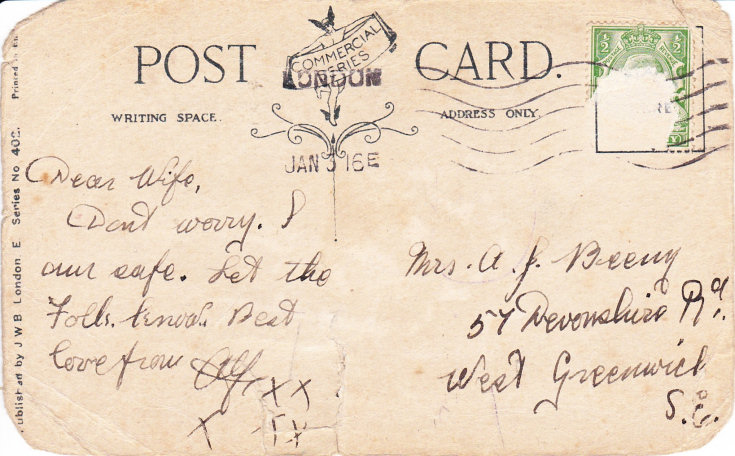 POST CARD.
COMMERCIAL
SERIES
LONDON
½ ½
WRITING SPACE.
ADDRESS ONLY.
JAN 3 16E
Dear Wife,
Dont worry. I
am safe. Let the
Folks know. Best
love from Alf. x x
x x x
Mrs. A. J. Beeny
57 Devonshire Rd.
West Greenwich
S.E.
Published by J W B London E Series No 402. Printed in